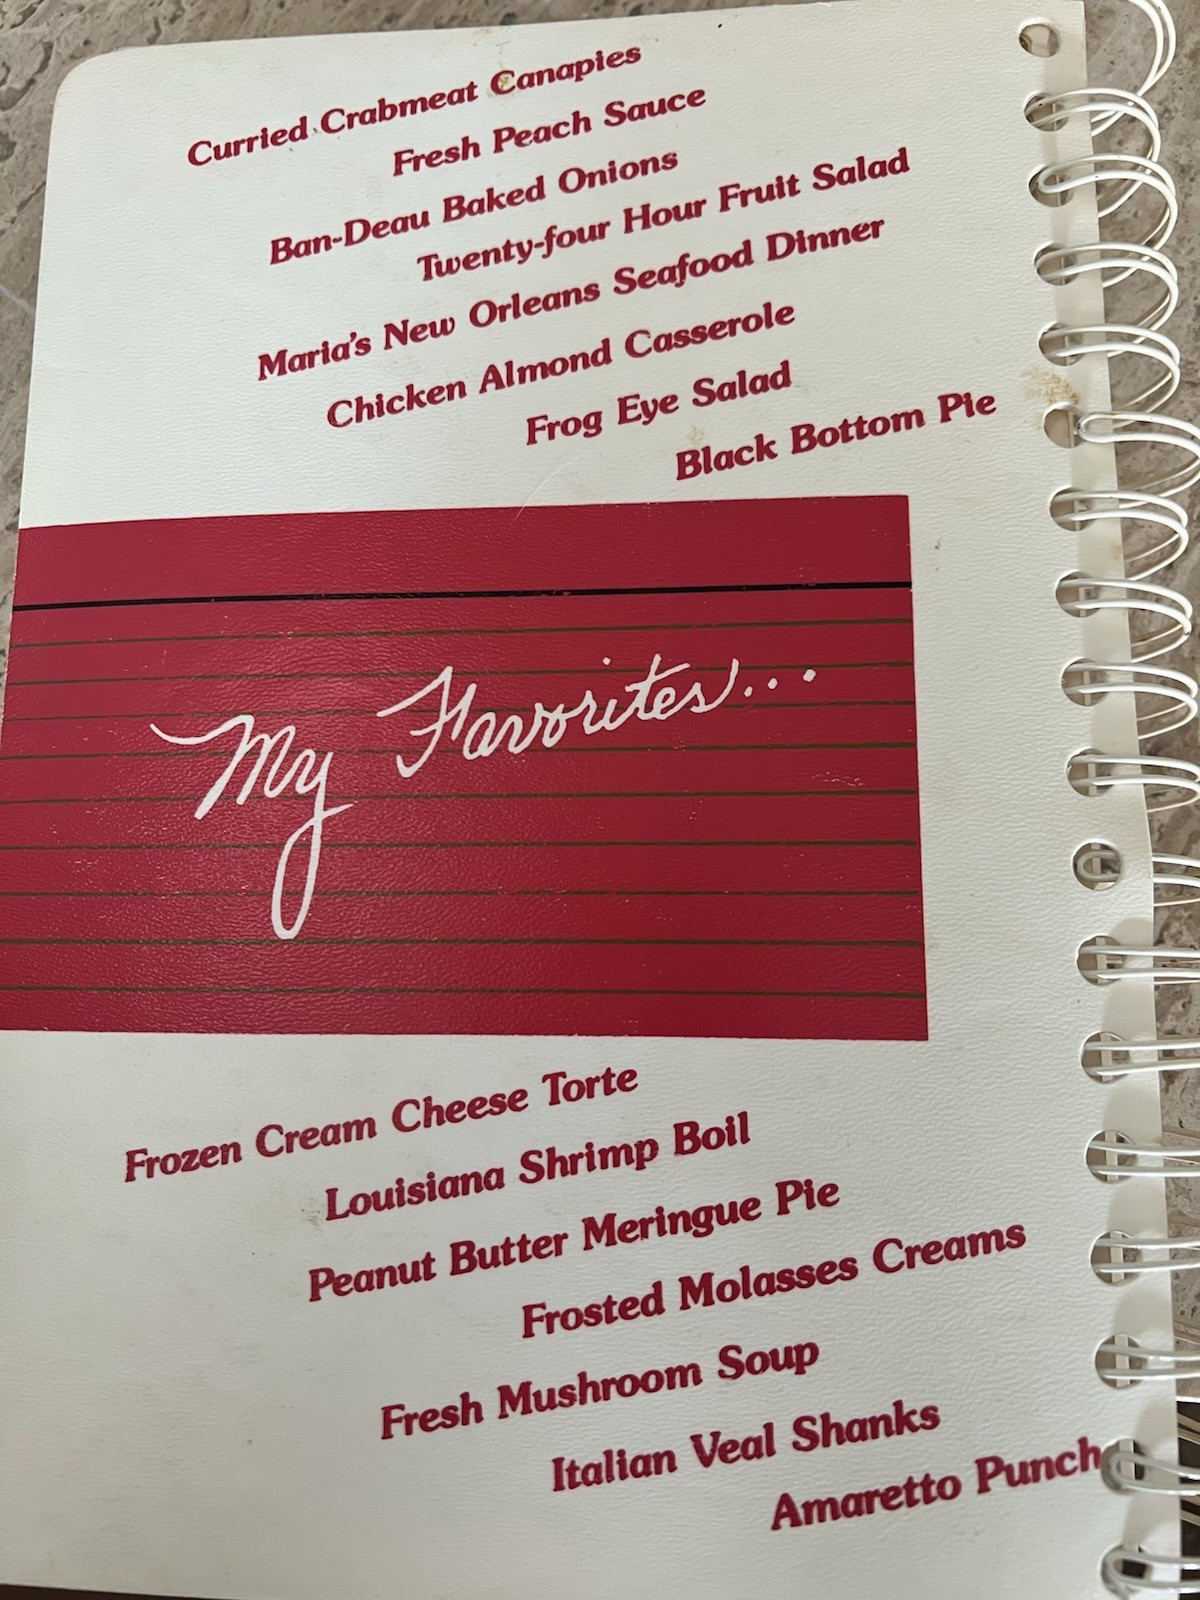 Curried Crabmeat Canapies
Fresh Peach Sauce
Ban-Deau Baked Onions
Twenty-four Hour Fruit Salad
Maria's New Orleans Seafood Dinner
Chicken Almond Casserole
Frog Eye Salad
Black Bottom Pie
My Favorites...
Frozen Cream Cheese Torte
Louisiana Shrimp Boil
Peanut Butter Meringue Pie
Frosted Molasses Creams
Fresh Mushroom Soup
Italian Veal Shanks
Amaretto Punch